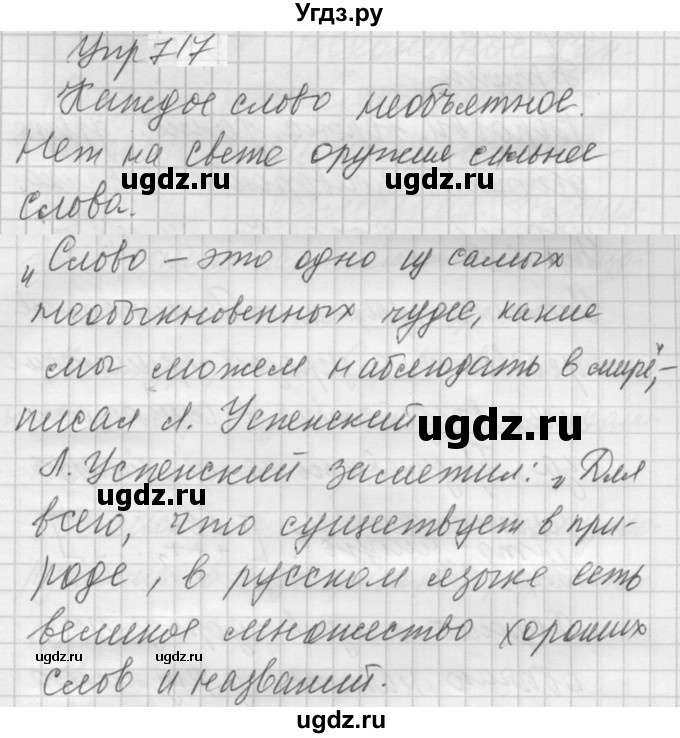 Угдз.ру
Упр 717
Каждое слово необъятное.
Нет на свете оружие сильнее
ugdz.ru ugdz.ru
слова.
„Слово – это одно из самых
необыкновенных чудес, какие
мы можем наблюдать в мире", –
писал Л. Успенский
ugdz.ru
Л. Успенский заметил: „Для
ugdz.ru
всего, что существует в при-
роде, в русском языке есть
великое множество хороших
ugdz.ru ugdz.ru
слов и названий.
ugdz.ru